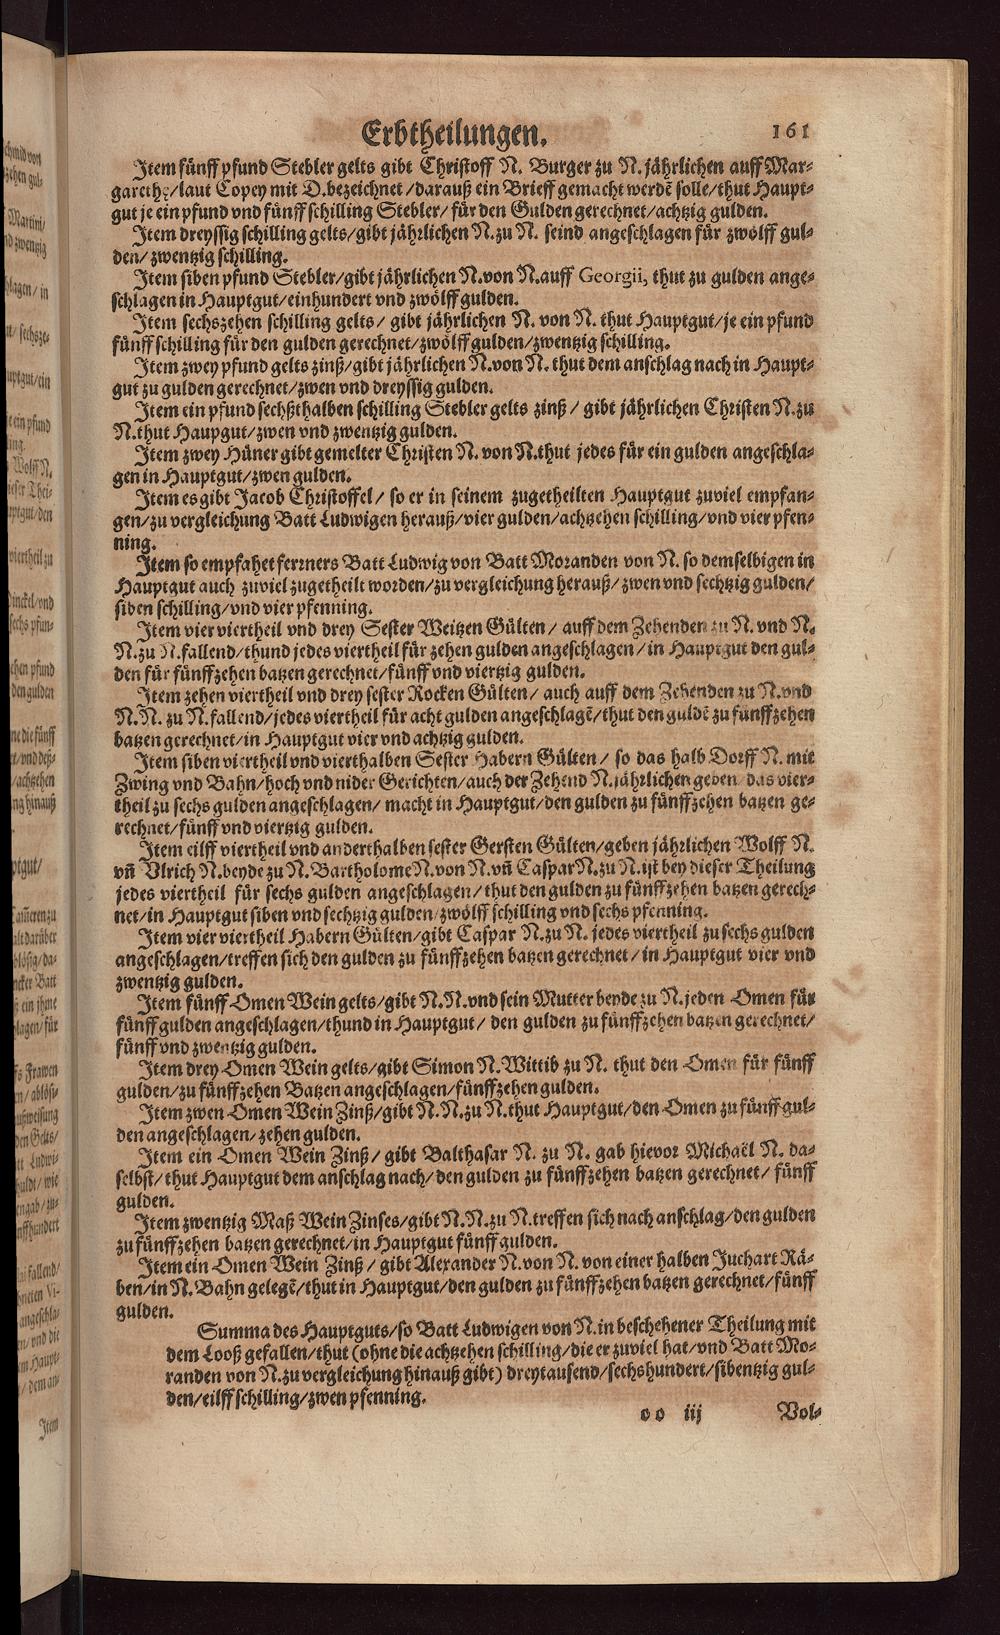 Erbtheilungen. 161
Item fünff pfund Stebler gelts gibt Christoff N. Burger zu N. jährlichen auff Mar-
garethę/laut Copey mit D. bezeichnet/darauß ein Brieff gemacht werdẽ solle/thut Haupt-
gut je ein pfund vnd fünff schilling Stebler/für den Gulden gerechnet/achtzig gulden.
Item dreyssig schilling gelts/gibt jährlichen N. zu N. seind angeschlagen für zwölff gul-
den/zwentzig schilling.
Item siben pfund Stebler/gibt jährlichen N. von N. auff Georgii, thut zu gulden ange-
schlagen in Hauptgut/einhundert vnd zwölff gulden.
Item sechszehen schilling gelts/gibt jährlichen N. von N. thut Hauptgut/je ein pfund
fünff schilling für den gulden gerechnet/zwölff gulden/zwentzig schilling.
Item zwey pfund gelts zinß/gibt jährlichen N. von N. thut dem anschlag nach in Haupt-
gut zu gulden gerechnet/zwen vnd dreyssig gulden.
Item ein pfund sechßthalben schilling Stebler gelts zinß/gibt jährlichen Christen N. zu
N. thut Haupgut/zwen vnd zwentzig gulden.
Item zwey Hüner gibt gemelter Christen N. von N. thut jedes für ein gulden angeschla-
gen in Hauptgut/zwen gulden.
Item es gibt Jacob Christoffel/so er in seinem zugetheilten Hauptgut zuviel empfan-
gen/zu vergleichung Batt Ludwigen herauß/vier gulden/achtzehen schilling/vnd vier pfen-
ning.
Item so empfahet ferrners Batt Ludwig von Batt Moranden von N. so demselbigen in
Hauptgut auch zuviel zugetheilt worden/zu vergleichung herauß/zwen vnd sechtzig gulden/
siben schilling/vnd vier pfenning.
Item vier viertheil vnd drey Sester Weitzen Gülten/auff dem Zehenden zu N. vnd N.
N. zu N. fallend/thund jedes viertheil für zehen gulden angeschlagen/in Hauptgut den gul-
den für fünffzehen batzen gerechnet/fünff vnd viertzig gulden.
Item zehen viertheil vnd drey sester Rocken Gülten/auch auff dem Zehenden zu N. vnd
N. N. zu N. fallend/jedes viertheil für acht gulden angeschlagẽ/thut den guldẽ zu fünffzehen
batzen gerechnet/in Hauptgut vier vnd achtzig gulden.
Item siben viertheil vnd vierthalben Sester Habern Gülten/so das halb Dorff N. mit
Zwing vnd Bahn/hoch vnd nider Gerichten/auch der Zehend N. jährlichen geben/das vier-
theil zu sechs gulden angeschlagen/macht in Hauptgut/den gulden zu fünffzehen batzen ge-
rechnet/fünff vnd viertzig gulden.
Item eilff viertheil vnd anderthalben sester Gersten Gülten/geben jährlichen Wolff N.
vñ Vlrich N. beyde zu N. Bartholome N. von N. vñ Caspar N. zu N. ist bey dieser Theilung
jedes viertheil für sechs gulden angeschlagen/thut den gulden zu fünffzehen batzen gerech-
net/in Hauptgut siben vnd sechtzig gulden/zwölff schilling vnd sechs pfenning.
Item vier viertheil Habern Gülten/gibt Caspar N. zu N. jedes viertheil zu sechs gulden
angeschlagen/treffen sich den gulden zu fünffzehen batzen gerechnet/in Hauptgut vier vnd
zwentzig gulden.
Item fünff Omen Wein gelts/gibt N. N. vnd sein Mutter beyde zu N. jeden Omen für
fünff gulden angeschlagen/thund in Hauptgut/den gulden zu fünffzehen batzen gerechnet/
fünff vnd zwentzig gulden.
Item drey Omen Wein gelts/gibt Simon N. Wittib zu N. thut den Omen für fünff
gulden/zu fünffzehen Batzen angeschlagen/fünffzehen gulden.
Item zwen Omen Wein Zinß/gibt N. N. zu N. thut Hauptgut/den Omen zu fünff gul-
den angeschlagen/zehen gulden.
Item ein Omen Wein Zinß/gibt Balthasar N. zu N. gab hievor Michaël N. da-
selbst/thut Hauptgut dem anschlag nach/den gulden zu fünffzehen batzen gerechnet/fünff
gulden.
Item zwentzig Maß Wein Zinses/gibt N. N. zu N. treffen sich nach anschlag/den gulden
zu fünffzehen batzen gerechnet/in Hauptgut fünff gulden.
Item ein Omen Wein Zinß/gibt Alexander N. von N. von einer halben Juchart Rä-
ben/in N. Bahn gelegẽ/thut in Hauptgut/den gulden zu fünffzehen batzen gerechnet/fünff
gulden.
Summa des Hauptguts/so Batt Ludwigen von N. in beschehener Theilung mit
dem Looß gefallen/thut (ohne die achtzehen schilling/die er zuviel hat/vnd Batt Mo-
randen von N. zu vergleichung hinauß gibt) dreytausend/sechshundert/sibentzig gul-
den/eilff schilling/zwen pfenning.
oo iij Vol-